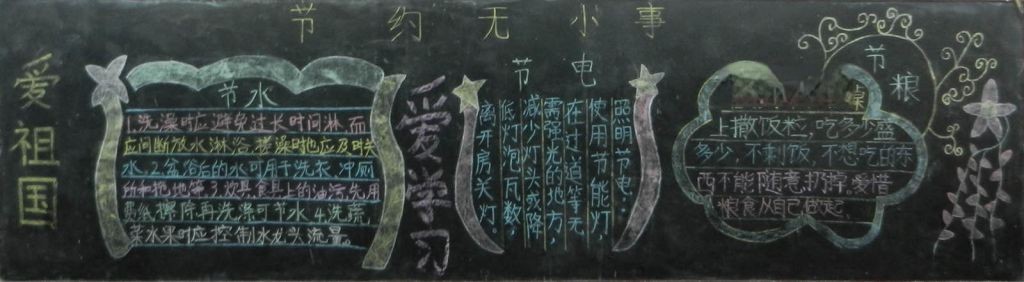 节约无小事
爱祖国
节水
1.洗澡时应避免过长时间淋,而
应间断放水淋浴。搓澡时应及时关
水。2.盆浴后的水可用于洗衣、冲厕
所和拖地等。3.炊具食具上的油污,先用
废纸擦除再洗涤可节水。4.洗蔬
菜水果时应控制水龙头流量。
爱学习
节电
照明节电:
使用节能灯,
在过道等无
需强光的地方,
减少灯头或降
低灯泡瓦数,
离开房关灯。
节粮
桌
上撒饭粒,吃多少盛
多少,不剩饭,不想吃的东
西不能随意扔掉,爱惜
粮食从自己做起.